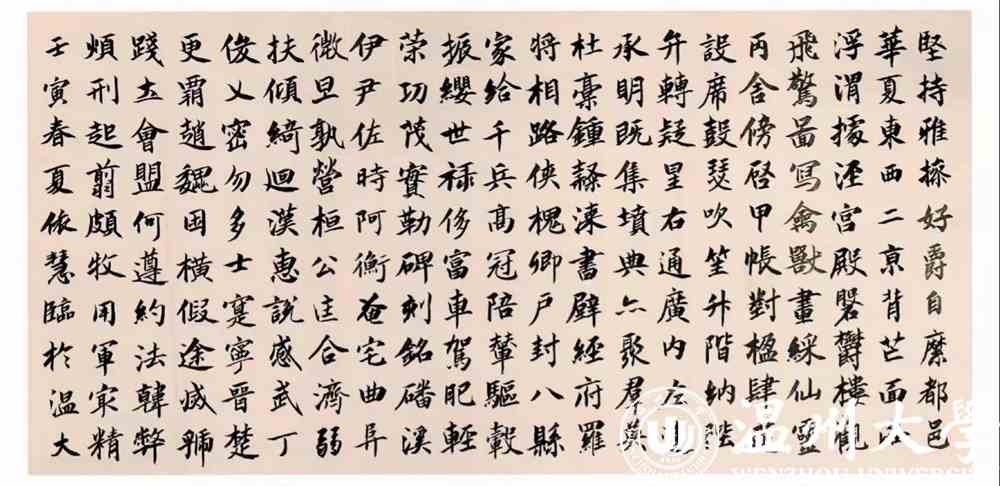 堅持雅操好爵自縻都邑
華夏東西二京背芒面洛
浮渭據涇宮殿磐鬱樓觀
飛驚啚寫禽獸畫綵仙靈
丙舍傍啓甲帳對楹肆筵
設席鼓瑟吹笙升階納陛
弁轉疑星右通廣内左達
承明既集墳典亦聚群英
杜稾鍾隸漆書壁經府羅
將相路俠槐卿戶封八縣
家給千兵高冠陪輦驅轂
振纓世祿侈富車駕肥輕
策功茂實勒碑刻銘磻溪
伊尹佐時阿衡奄宅曲阜
微旦孰營桓公匡合濟弱
扶傾綺迴漢惠說感武丁
俊乂密勿多士寔寧晉楚
更霸趙魏困橫假途滅虢
踐土會盟何遵約法韓弊
煩刑起翦頗牧用軍最精
壬寅春夏依慧臨於温大
温州大學
WENZHOU UNIVERSITY